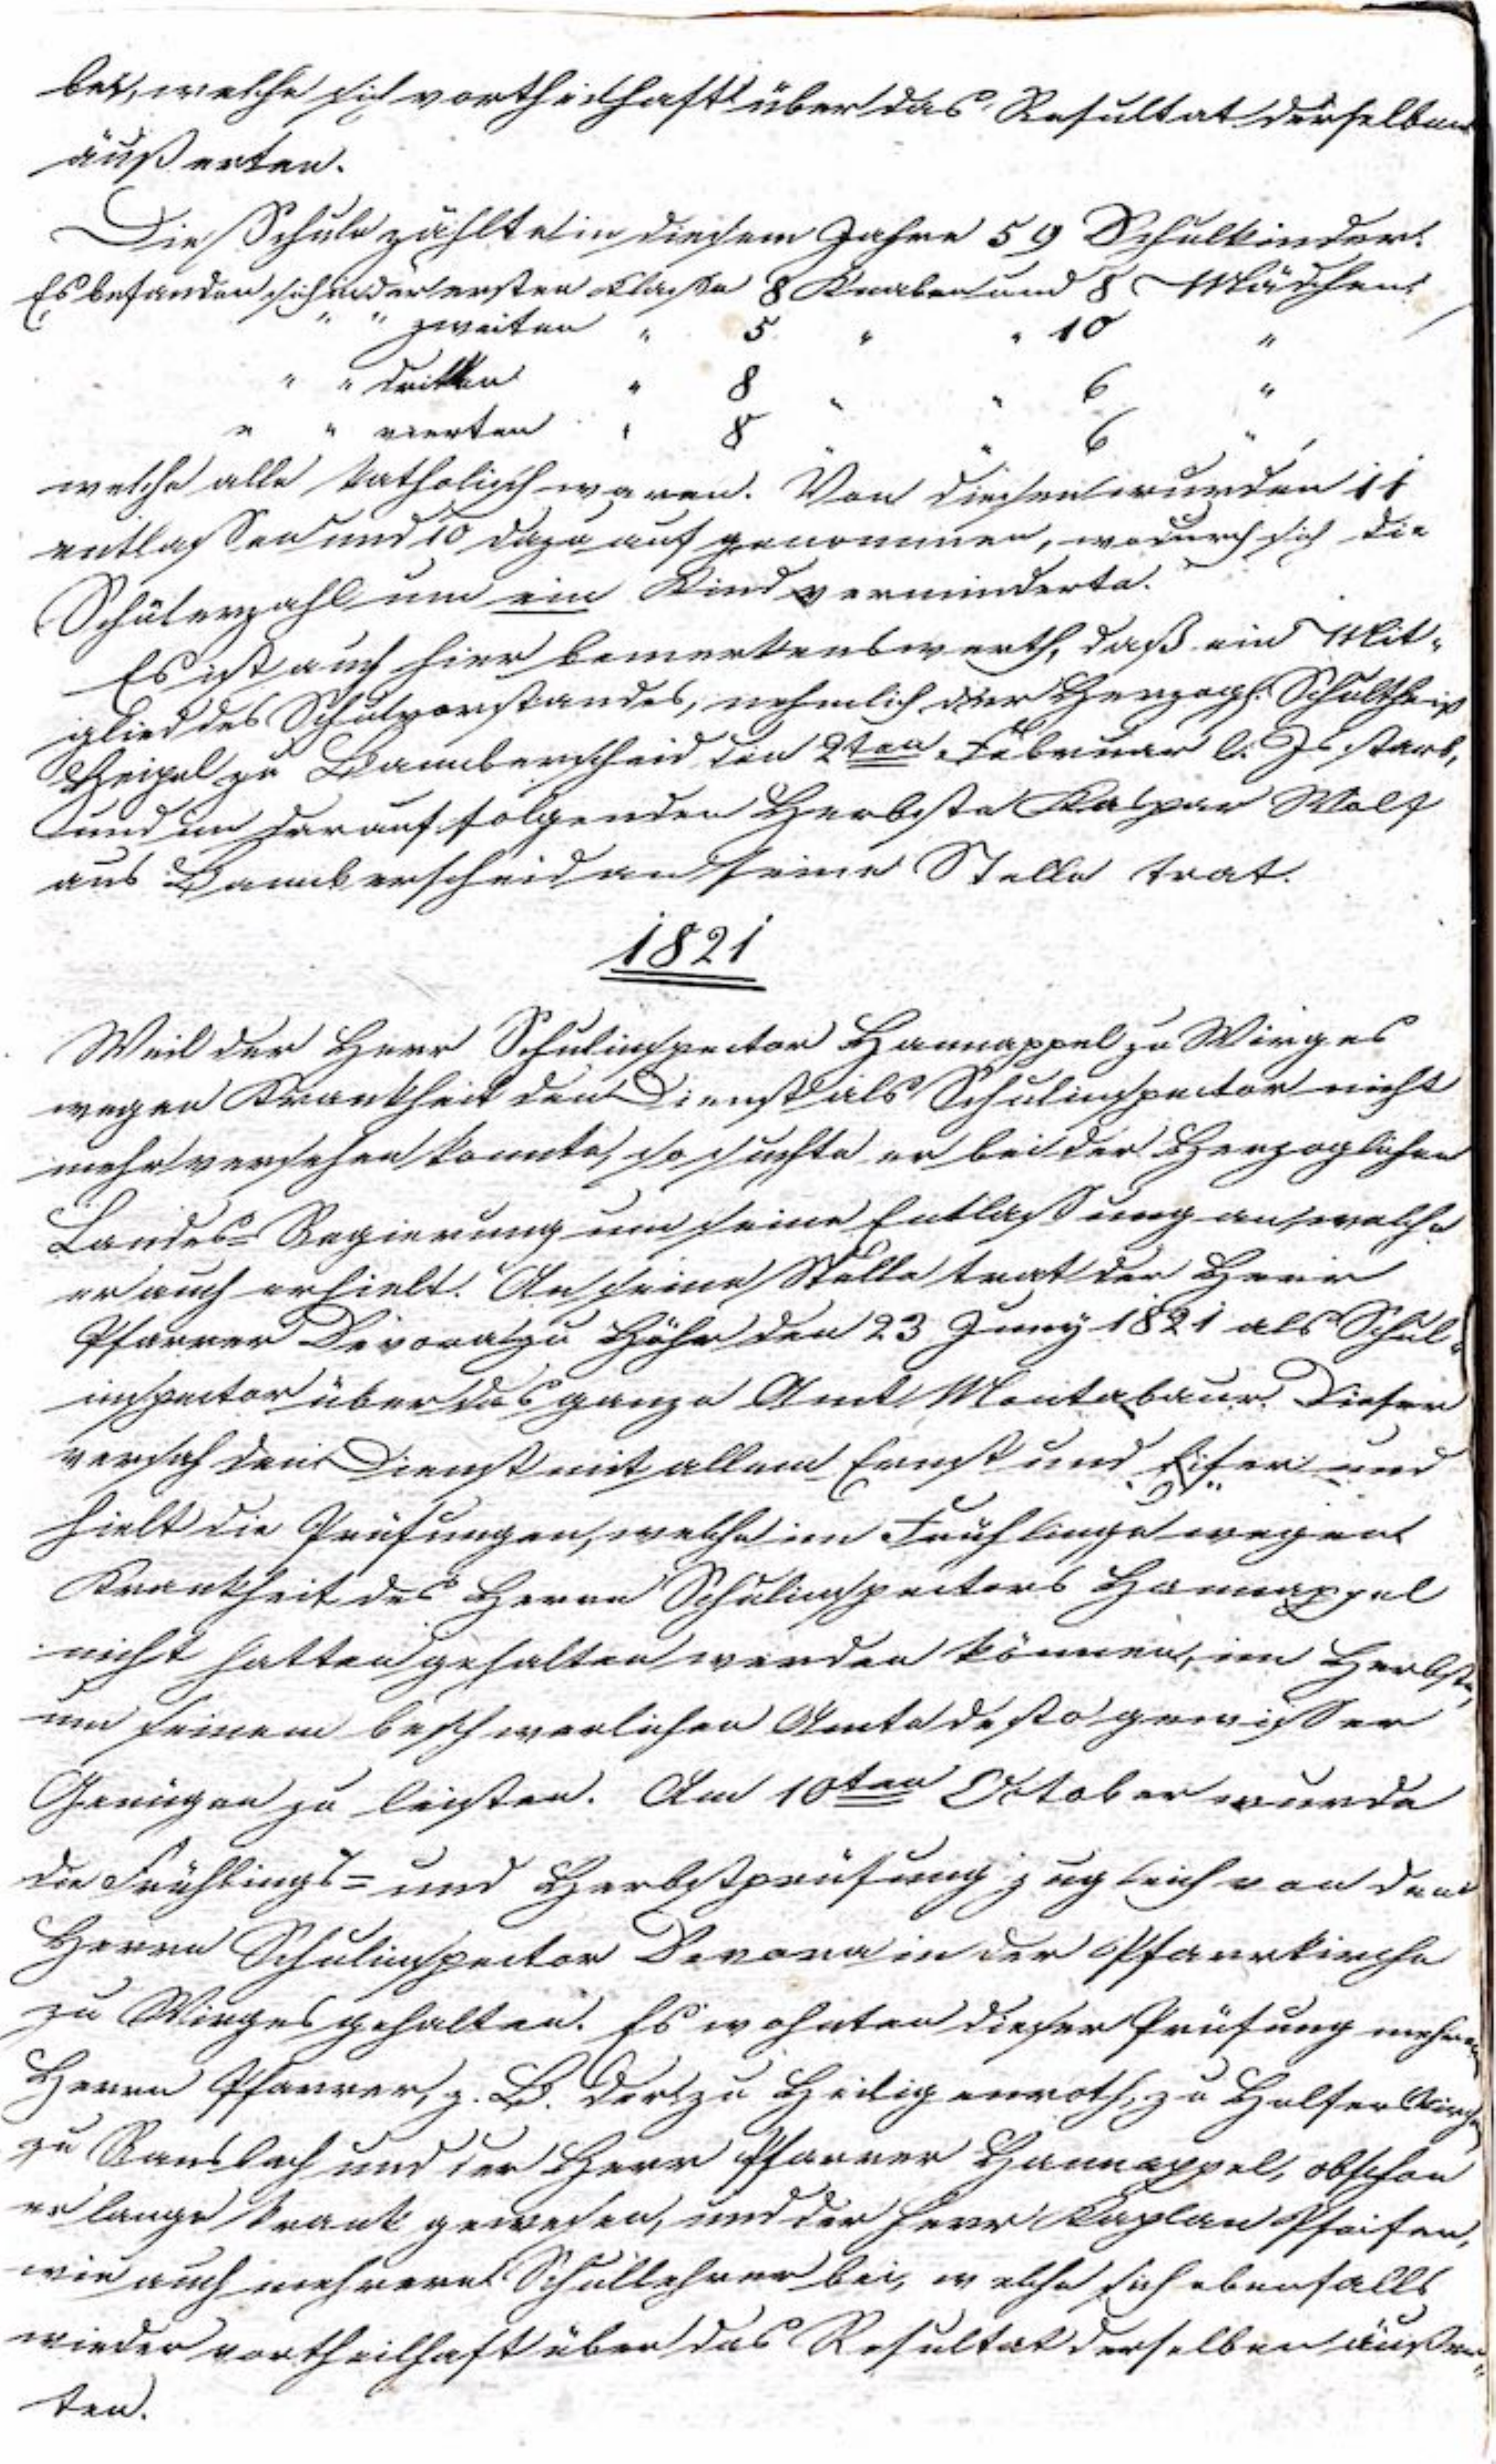 bei, welche sich vortheilhaft über das Resultat derselben
äußerten.
Die Schule zählte in diesem Jahre 59 Schulkinder.
Es befanden sich in der ersten Classe 8 Knaben und 8 Mädchen
" " zweiten " 5 " " 10 "
" " dritten " 8 " " 6 "
" " vierten " 8 " " 6 " ,
welche alle katholisch waren. Von diesen wurden 11
entlassen und 10 dazu aufgenommen, wodurch sich die
Schülerzahl um ein Kind verminderte.
Es ist auch hier bemerkenswerth, daß ein Mit-
glied des Schulvorstandes, nehmlich der Herzogl. Schultheiß
Heigel zu Bannberscheid den 2ten Februar l. Js starb,
und im darauf folgenden Herbste Kaspar Wolf
aus Bannberscheid an seine Stelle trat.
1821
Weil der Herr Schulinspector Hannappel zu Wirges
wegen Krankheit den Dienst als Schulinspector nicht
mehr versehen konnte, so suchte er bei der Herzoglichen
Landes-Regierung um seine Entlassung an, welche
er auch erhielt. An seine Stelle trat der Herr
Pfarrer Devora zu Höhr den 23 Juny 1821 als Schul-
inspector über das ganze Amt Montabaur. Dieser
versah den Dienst mit allem Ernst und Eifer und
hielt die Prüfungen, welche im Frühlinge wegen
Krankheit des Herrn Schulinspectors Hannappel
nicht hatten gehalten werden können, im Herbste,
um seinem beschwerlichen Amte desto gewisser
Genügen zu leisten. Am 10ten October wurde
die Frühlings- und Herbstprüfung zugleich von dem
Herrn Schulinspector Devora in der Pfarrkirche
zu Wirges gehalten. Es wohnten dieser Prüfung mehrere
Herrn Pfarrer, z. B. der zu Heiligenroth, zu Helferskirchen
zu Ransbach und der Herr Pfarrer Hannappel, obschon
er lange krank gewesen, und der Herr Kaplan Pfeifer,
wie auch mehrere Schullehrer bei, welche sich ebenfalls
wieder vortheilhaft über das Resultat derselben äußer-
ten.